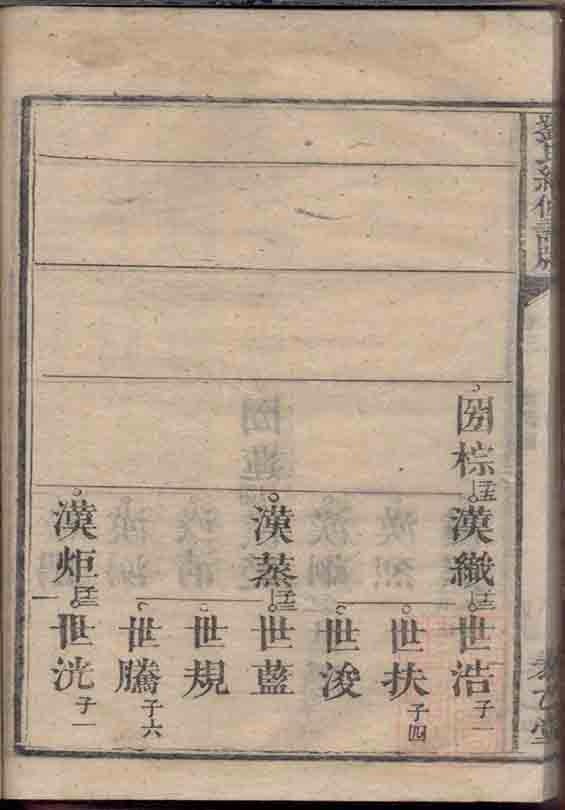 棕
漢織
世浩 子一
世扶 子四
世浚
漢蒸
世藍
世規
世騰 子六
漢炬
世洸 子一